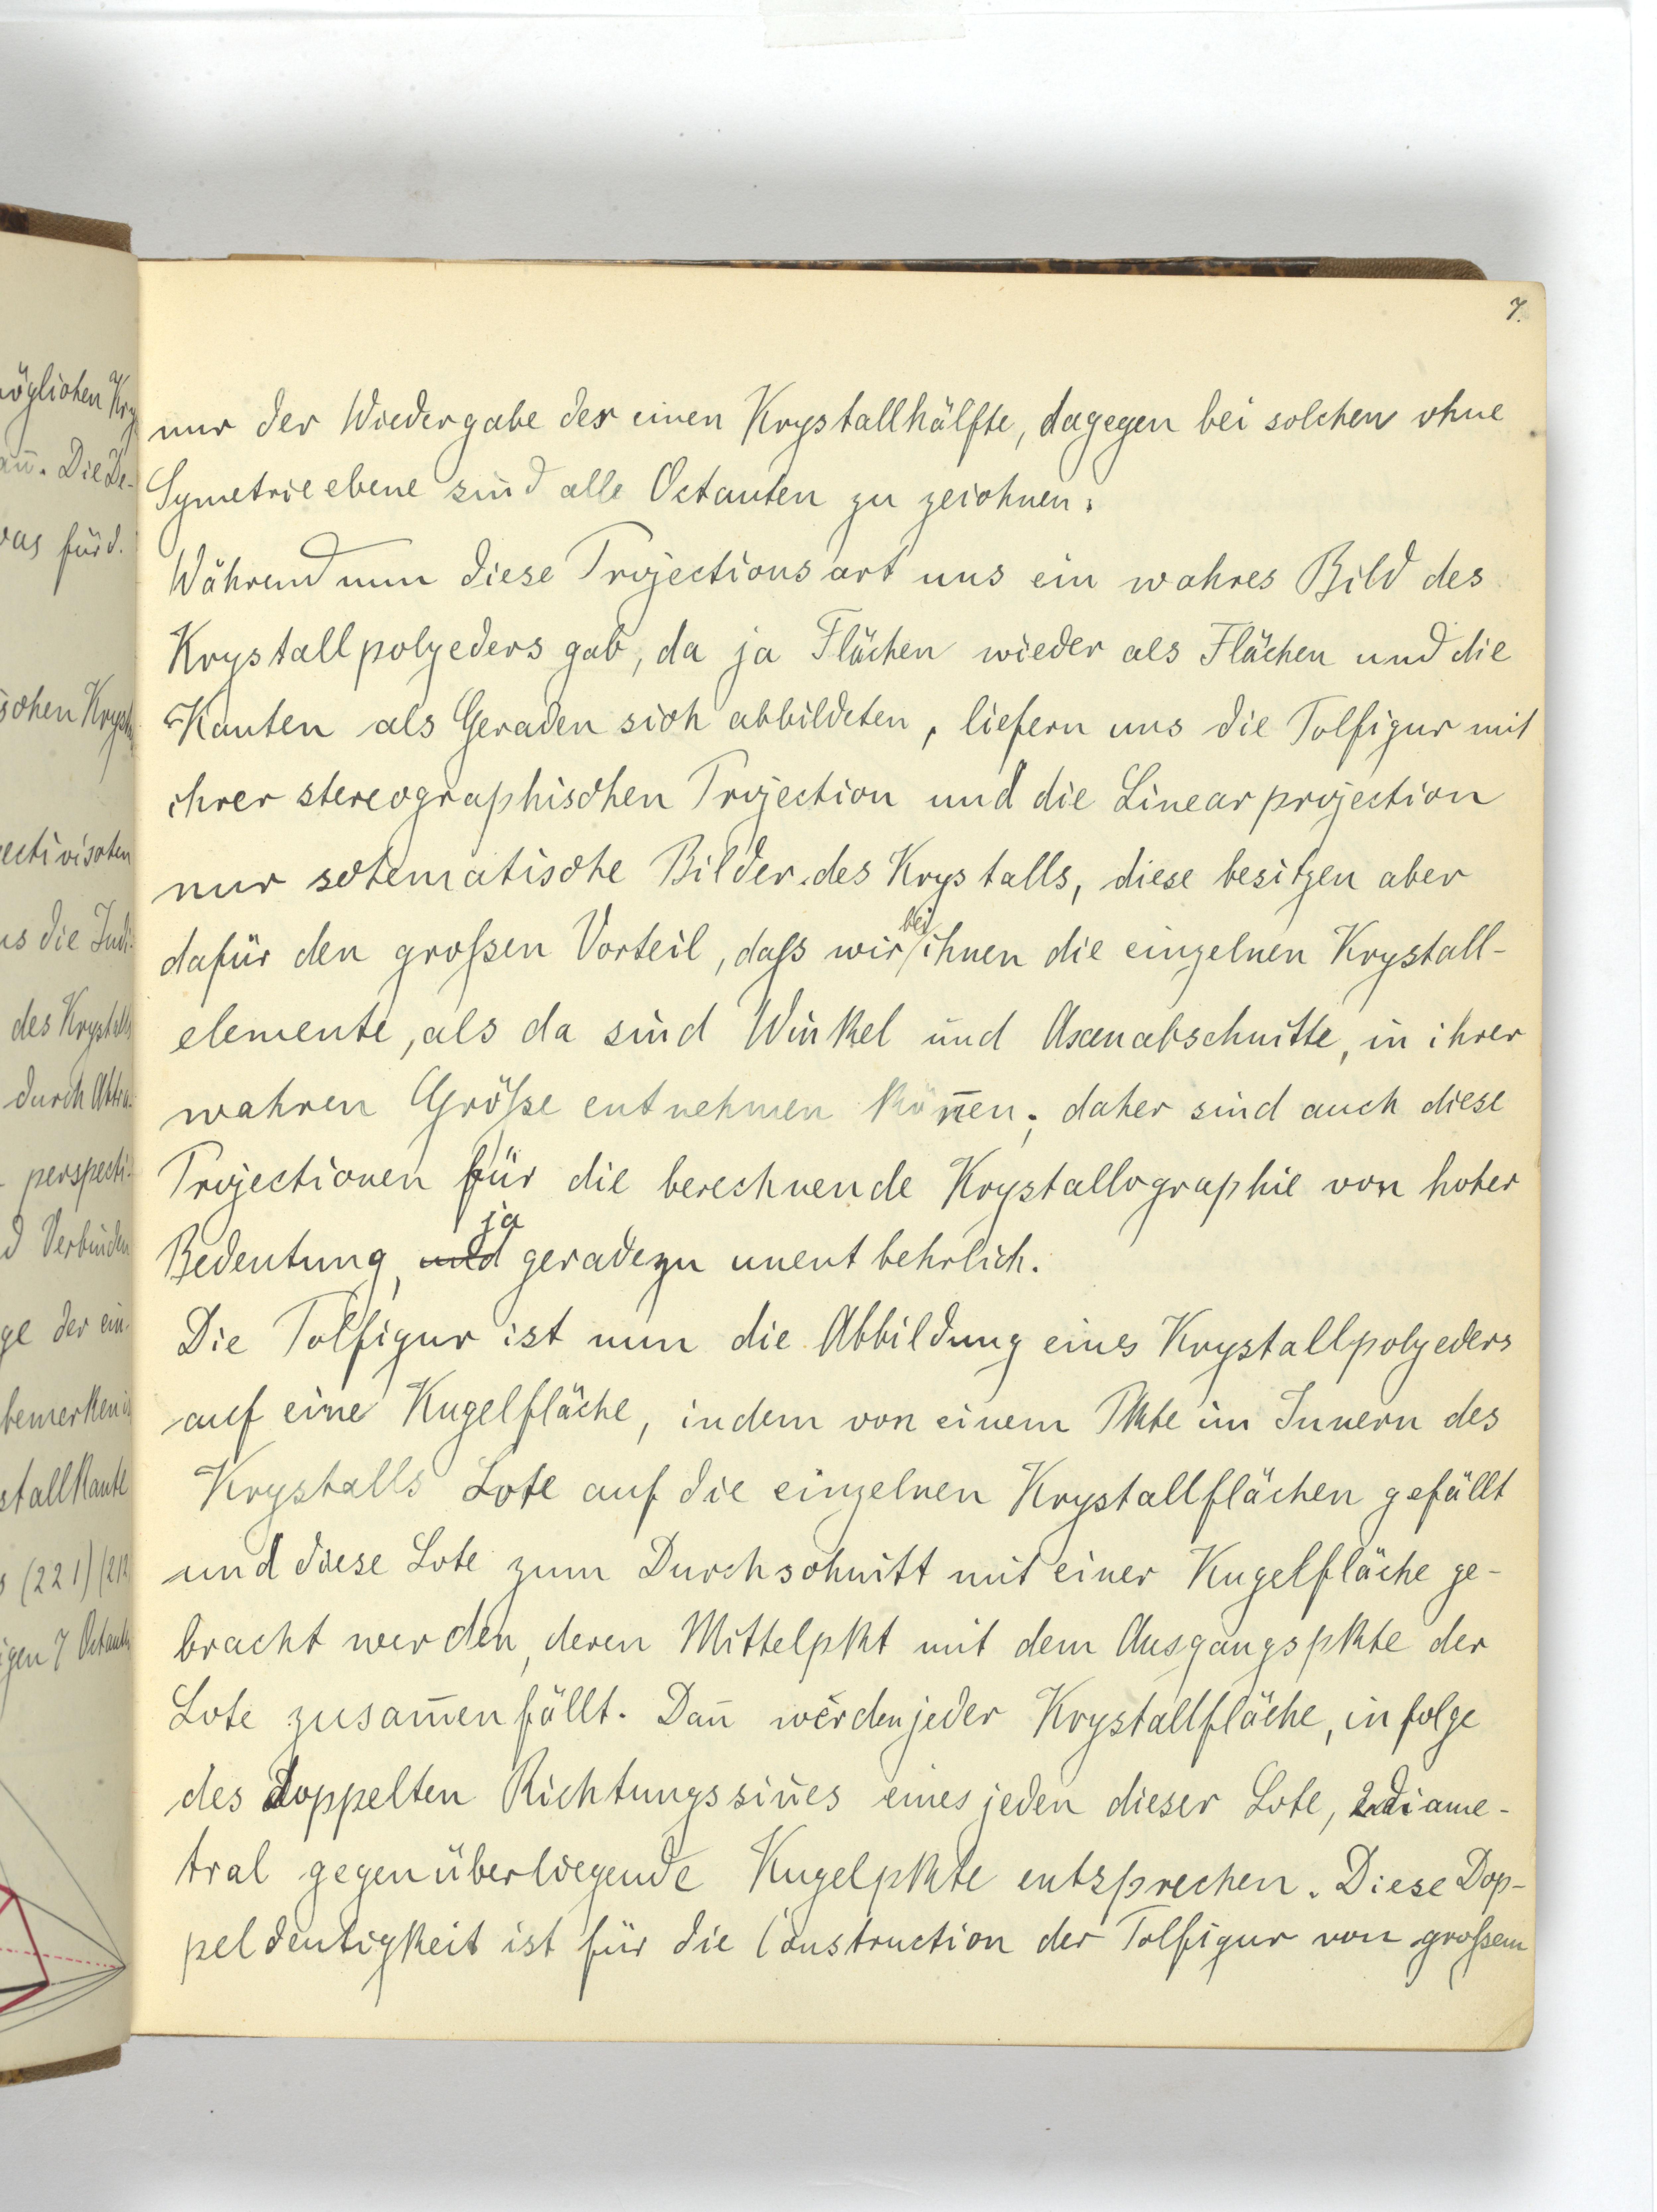 7.
nur der Wiedergabe der einen Krystallhälfte, dagegen bei solchen ohne
Symetrieebene sind alle Octanten zu zeichnen.
Während nun diese Projectionsart uns ein wahres Bild des
Krystallpolyeders gab, da ja Flächen wieder als Flächen und die
Kanten als Geraden sich abbildeten, liefern uns die Polfigur mit
ihrer stereographischen Projection und die Linearprojection
nur schematische Bilder des Krystalls, diese besitzen aber
dafür den großen Vorteil, daß wir bei ihnen die einzelnen Krystall-
elemente, als da sind Winkel und Axenabschnitte, in ihrer
wahren Größe entnehmen köñen; daher sind auch diese
Projectionen für die berechnende Krystallographie von hoher
Bedeutung, und ja geradezu unentbehrlich.
Die Polfigur ist nun die Abbildung eines Krystallpolyeders
auf eine Kugelfläche, indem von einem Pkte im Innern des
Krystalls Lote auf die einzelnen Krystallflächen gefällt
und diese Lote zum Durchschnitt mit einer Kugelfläche ge-
bracht werden, deren Mittelpkt mit dem Ausgangspkte der
Lote zusam̄enfällt. Dan̄ werden jeder Krystallfläche, infolge
des doppelten Richtungssin̄es eines jeden dieser Lote, 2 diame-
tral gegenüberliegende Kugelpkte entsprechen. Diese Dop-
peldeutigkeit ist für die Construction der Polfigur von großem
möglichen Kry
an̄. Die De-
was für d.
ischen Kryst
ectivischen
us die Indi-
des Krystalls
durch Abtra-
- perspecti-
d Verbinden
ge der ein-
bemerken is
stallkante
s (221) (212
igen 7 Octanten